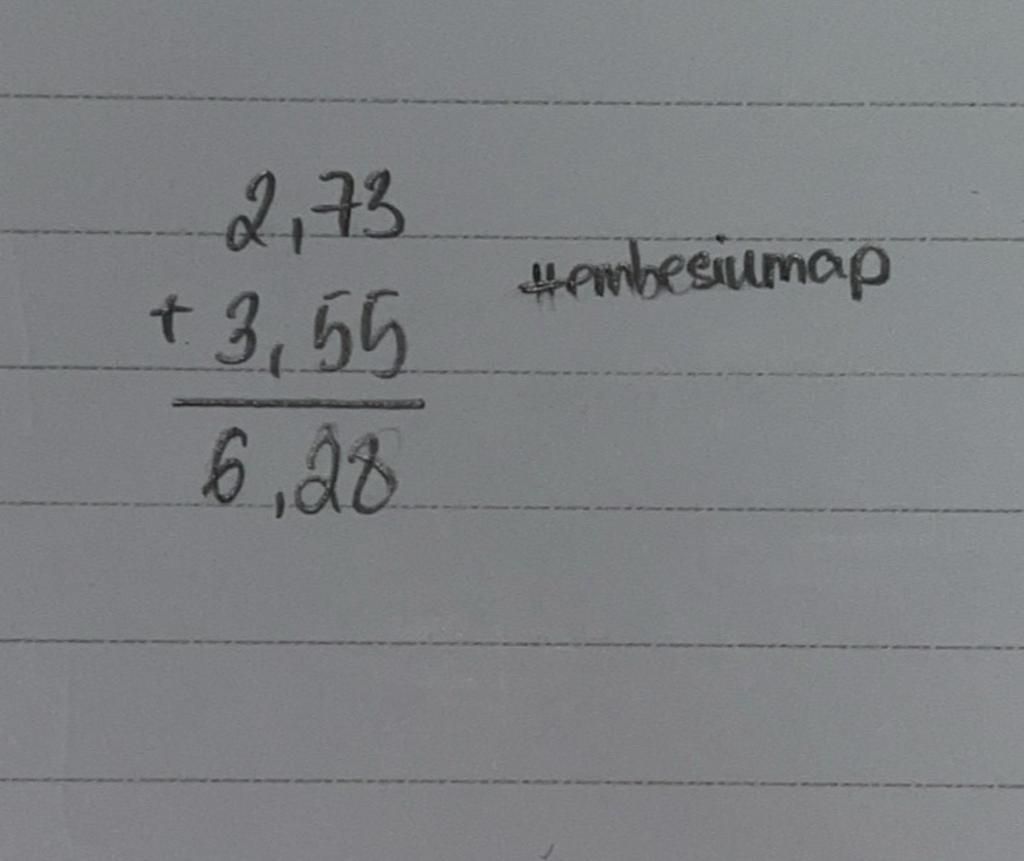 2,73
+ 3,55 #embesiumap
6,28